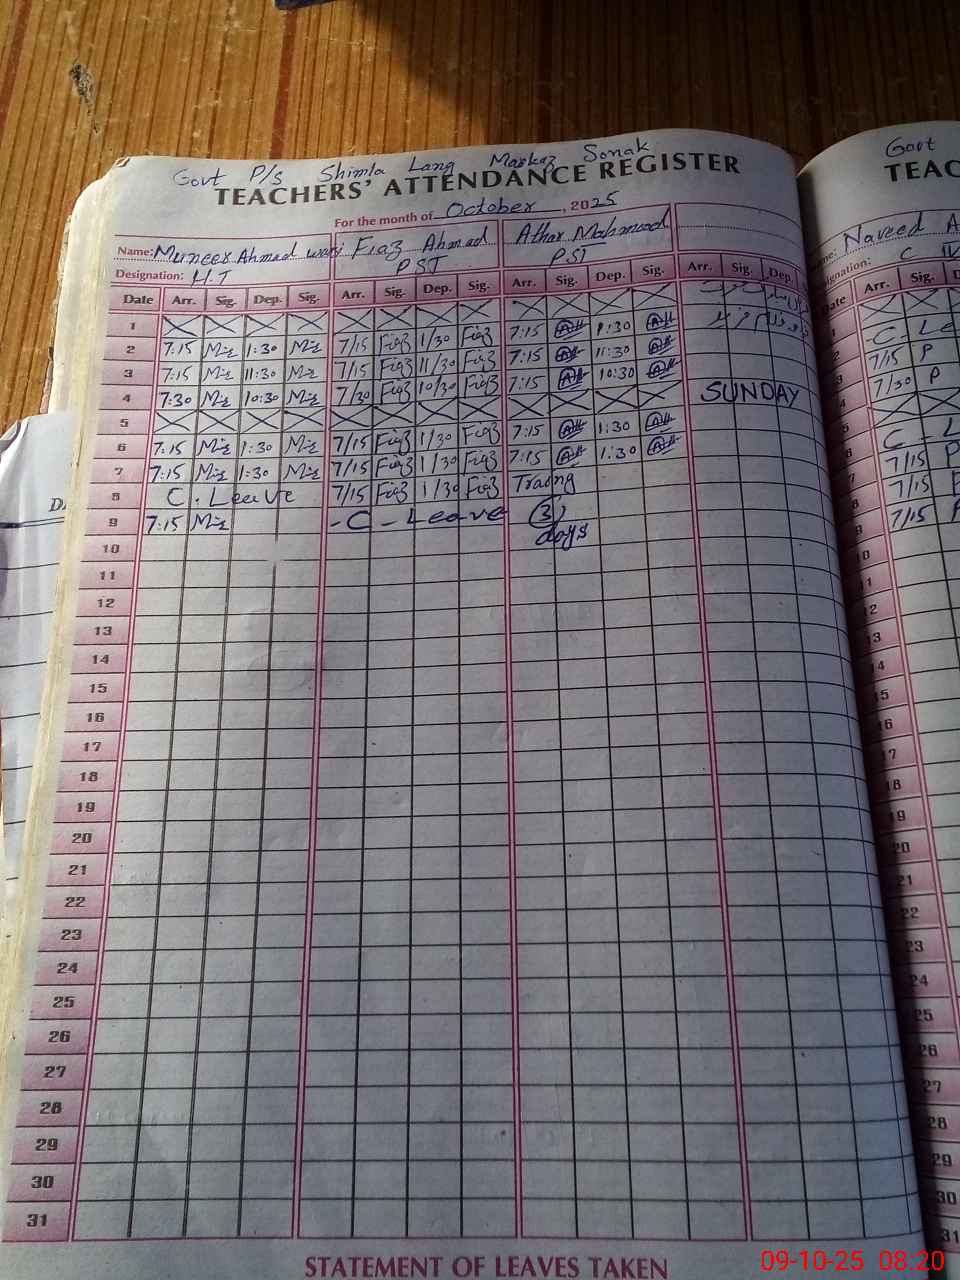 Govt P/s Shimla Lang Markaz Sonak
TEACHERS' ATTENDANCE REGISTER
For the month of October, 2025
Name: Muneer Ahmad Fiaz Ahmad Athar Mahmood
Designation: H.T PST PST
Date Arr. Sig. Dep. Sig. Arr. Sig. Dep. Sig. Arr. Sig. Dep. Sig. Arr. Sig. Dep
1
2 7:15 1:30 7/15 Fiaz 1/30 Fiaz 7:15 1:30
3 7:15 11:30 7/15 Fiaz 11/30 Fiaz 7:15 11:30
4 7:30 10:30 7/30 Fiaz 10/30 Fiaz 7:15 10:30
5 SUNDAY
6 7:15 1:30 7/15 Fiaz 1/30 Fiaz 7:15 1:30
7 7:15 1:30 7/15 Fiaz 1/30 Fiaz 7:15 1:30
8 C. Leave 7/15 Fiaz 1/30 Fiaz Traing
9 7:15 - C - Leave (3)
days
10
11
12
13
14
15
16
17
18
19
20
21
22
23
24
25
26
27
28
29
30
31
STATEMENT OF LEAVES TAKEN
Govt
TEAC
Naveed A
Arr.
C - Le
7/15 P
7/30 P
C - L
7/15 P
7/15
7/15
09-10-25 08:20